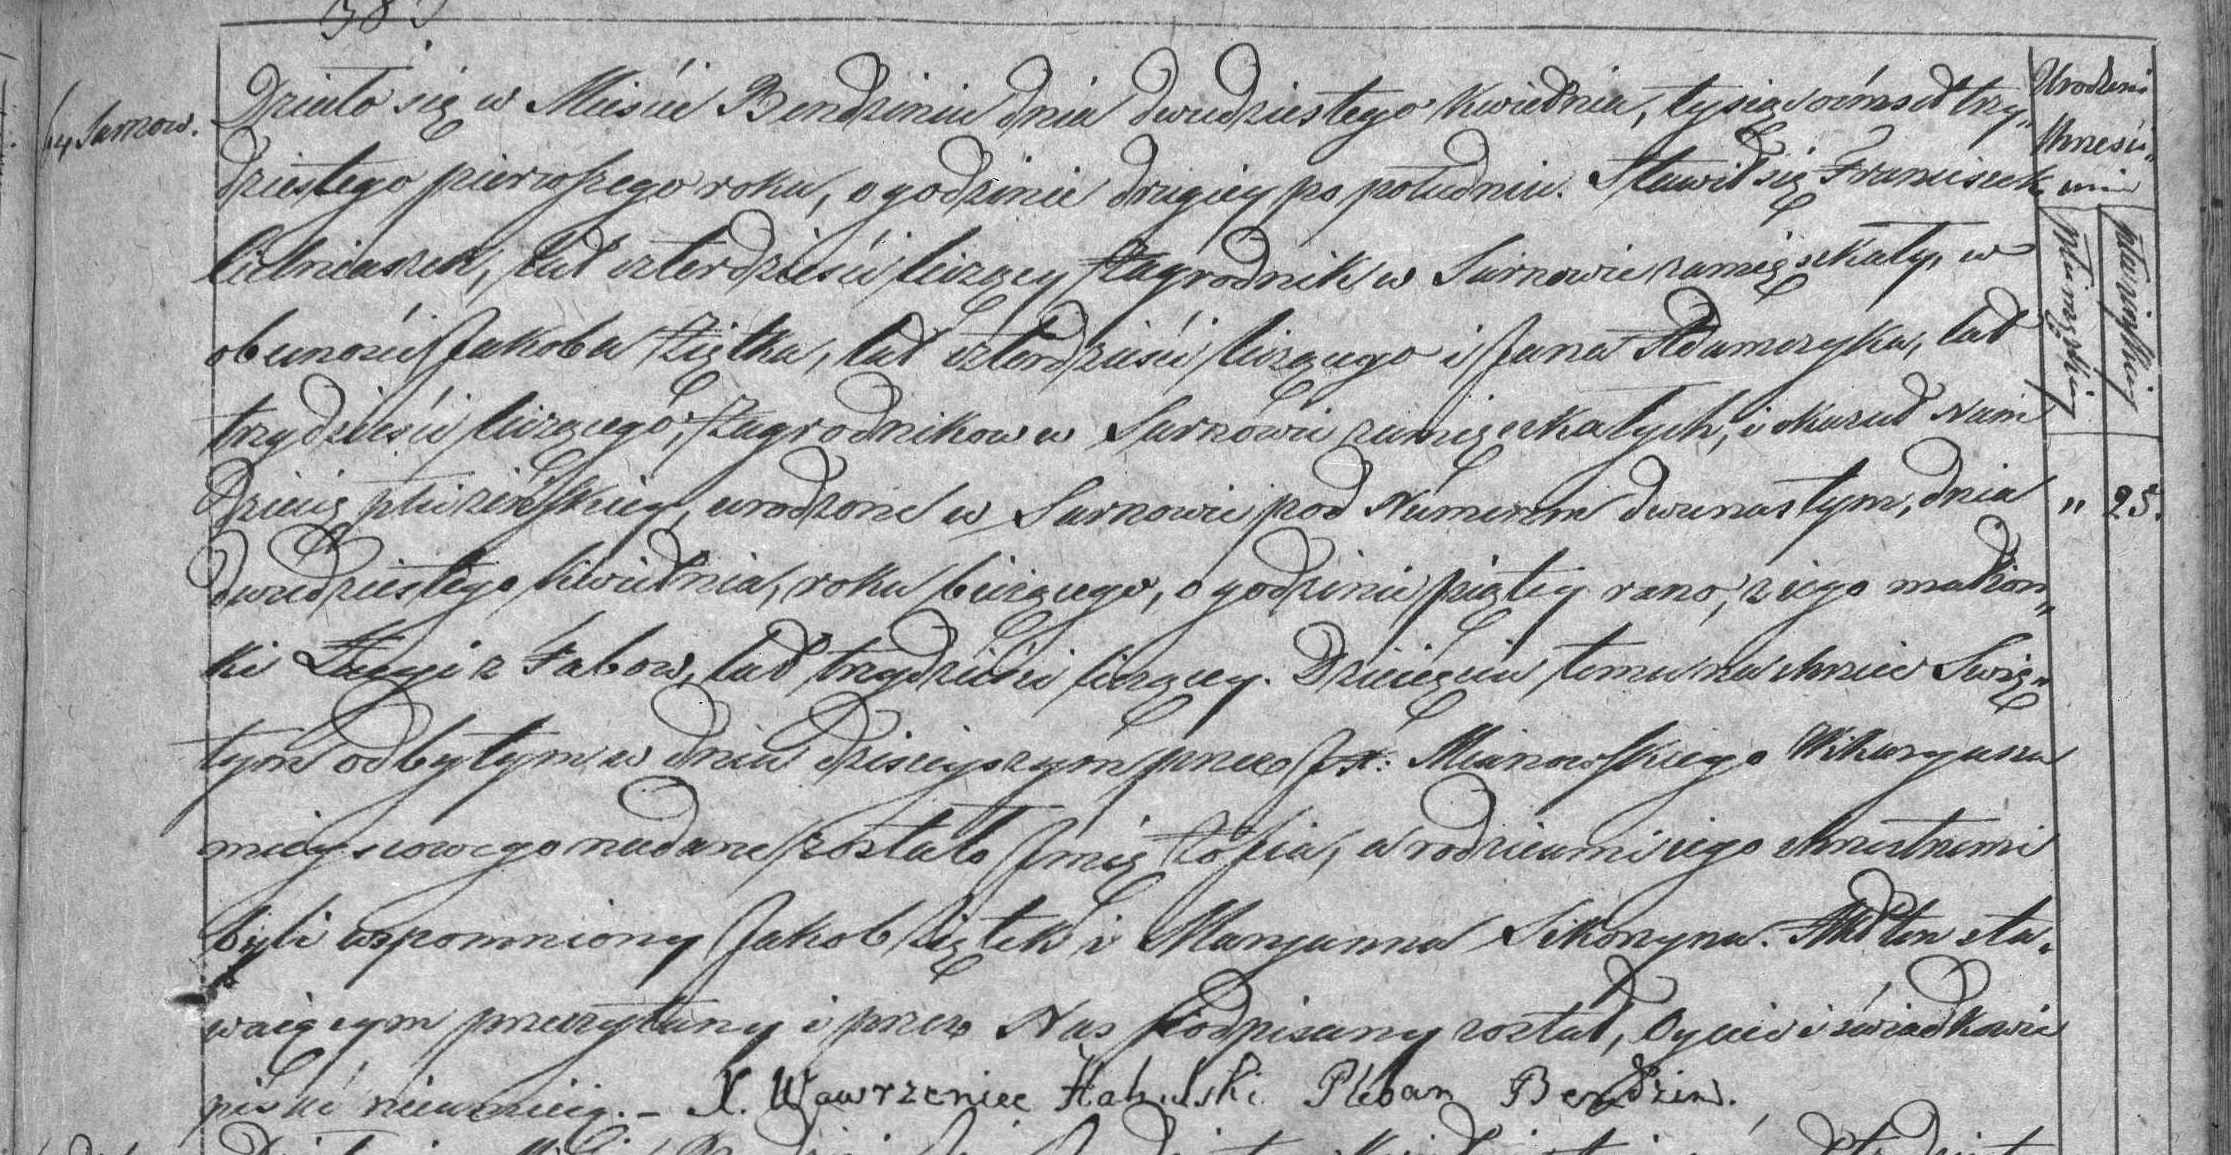 64 Sarnow.
Działo się w Mieście Bendzinie dnia dwudziestego Kwietnia, tysiąc ośmset trzy„
dziestego pierwszego roku, o godzinie drugiey po południu. Stawił się Franciszek
lat czterdzieści liczący Zagrodnik w Sarnowie zamięszkały, w
obecności Jakoba Ziętka, lat czterdzieści liczącego i Jana Adamczyka, lat
trzydzieści liczącego, Zagrodnikow w Sarnowie zamięszkałych, i okazał Nam
Dziecię płci żeńskiey, urodzone w Sarnowie pod Numerem dwunastym, dnia
dwudziestego Kwietnia, roku bieżącego, o godzinie piątey rano, z iego małżon„
ki z Fabow, lat trzydzieści liczącey. Dziecięciu temu na chrzcie Swię„
tym odbytym w dniu dzisieyszym przez JX: Mianowskiego Wikaryusza
mieyscowego nadane zostało Imię Zofia, a rodzicami iego chrzestnemi
byli wspomniony Jakob Ziętek i Maryanna Sikorzyna. Akt ten sta„
waiącym przeczytany i przez Nas podpisany został, Oyciec i świadkowie
pisać nieumieią. – X. Wawrzeniec Pleban Bendzin.
Urodzeni
Chrześci„
anie
płci męzkiey
płci żeńskiey
„ 25.